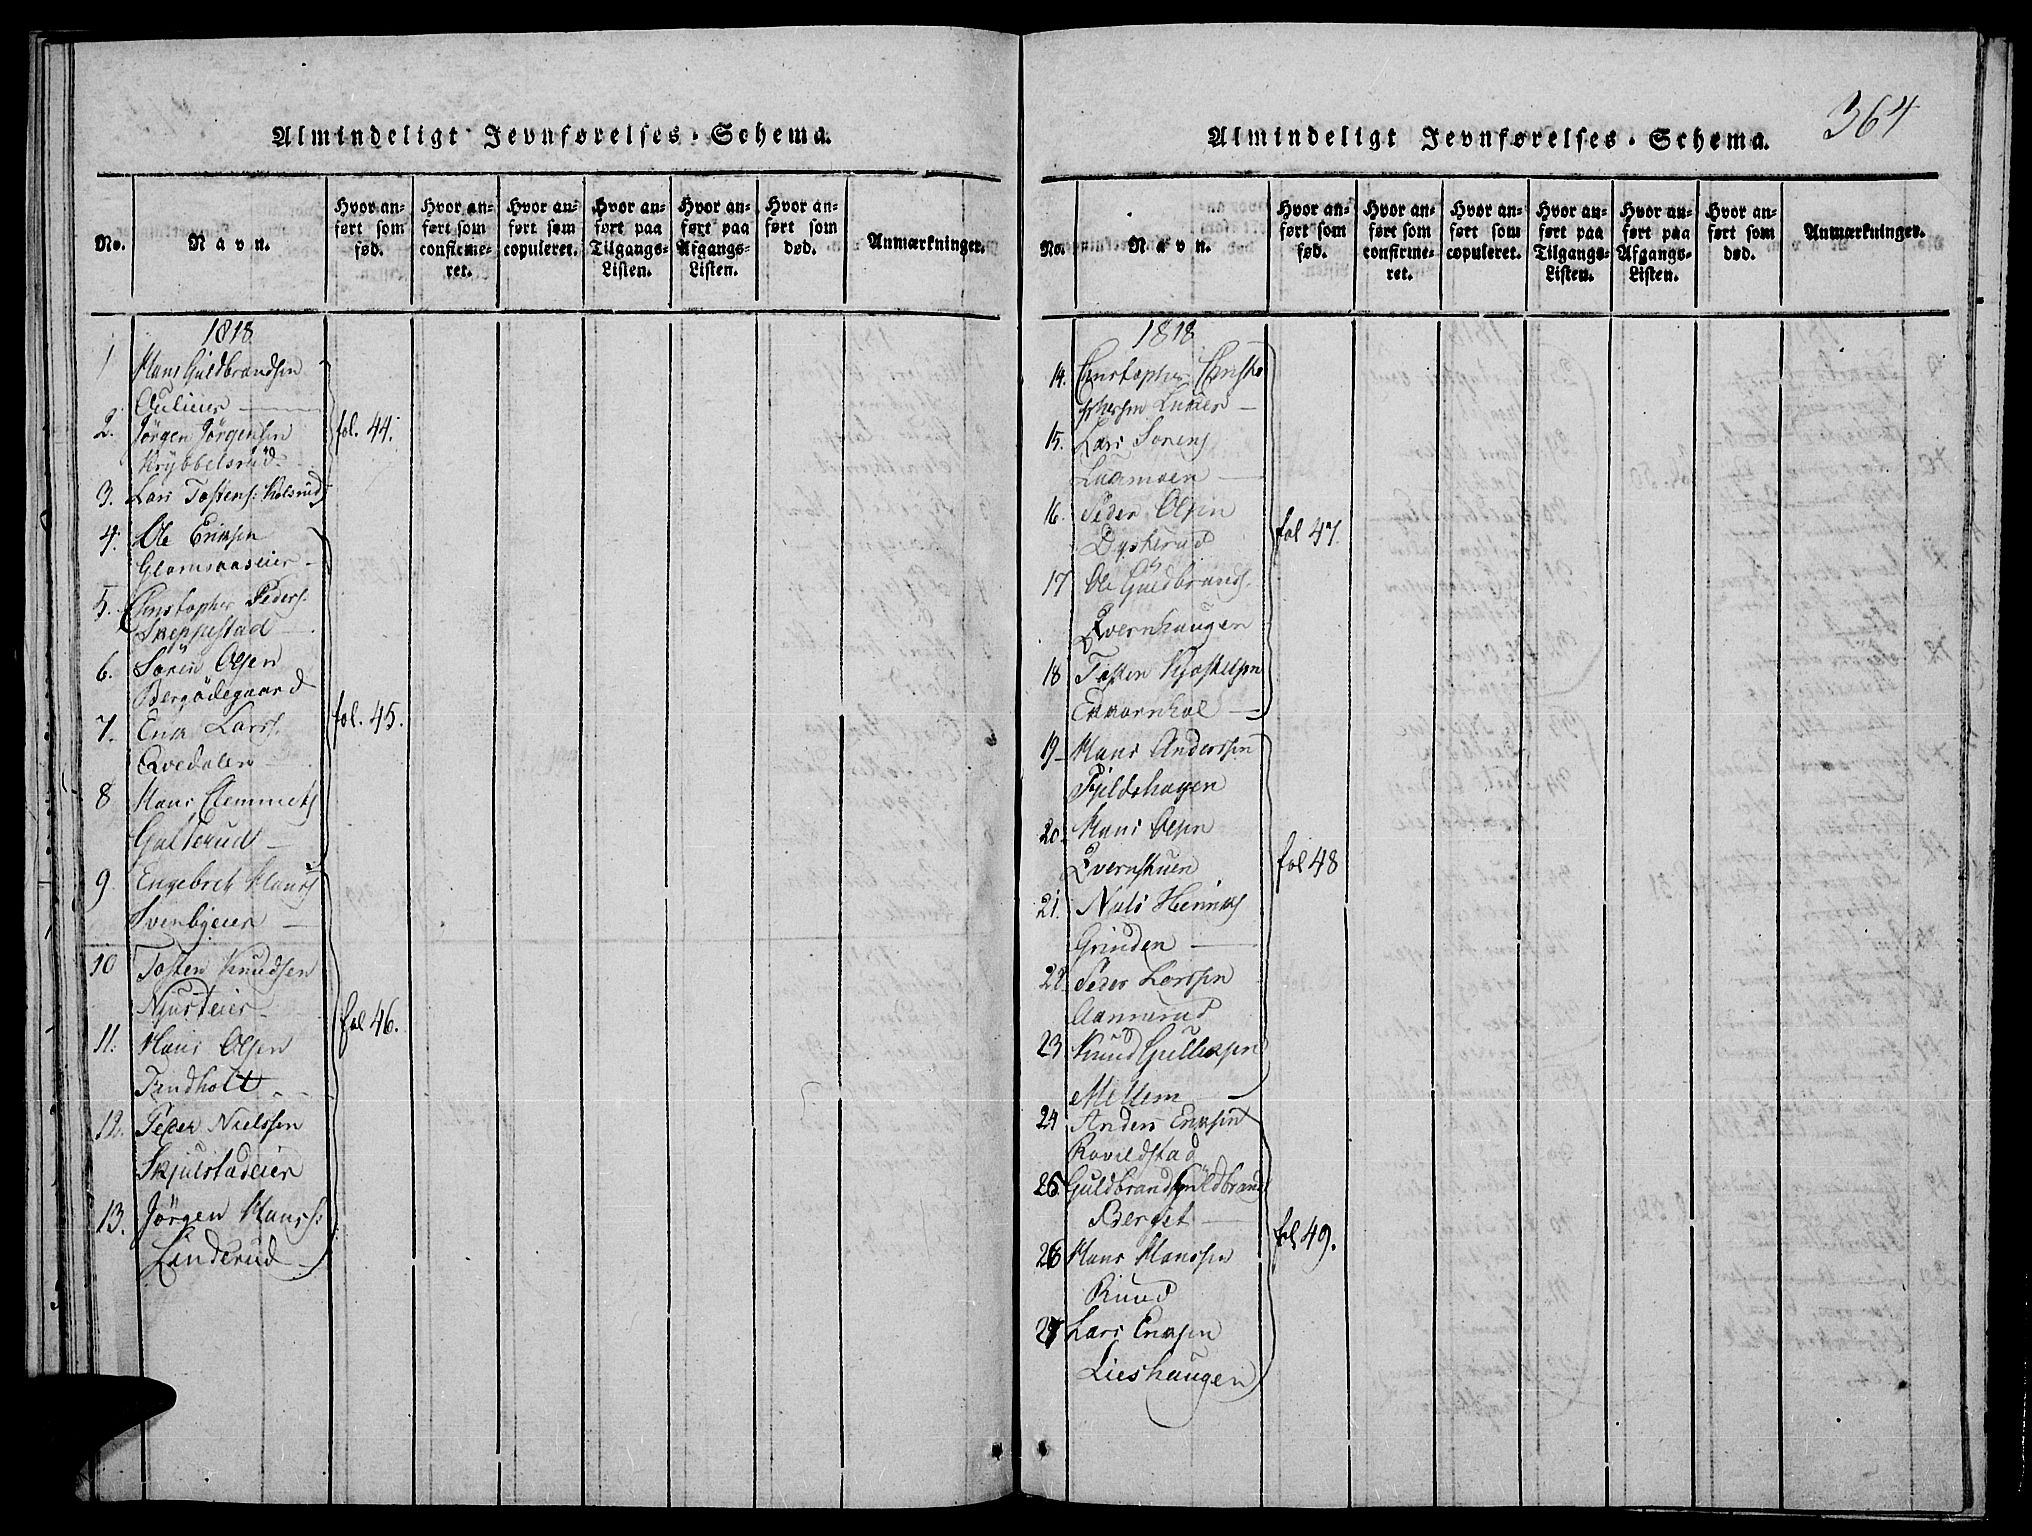 Almindeligt Jevnførelses-Schema.
No.
Navn.
Hvor an-
ført som
fød.
Hvor an-
ført som
confirme-
ret.
Hvor an-
ført som
copuleret.
Hvor an-
ført paa
Tilgangs-
Listen.
Hvor an-
ført paa
Afgangs-
Listen.
Hvor an-
ført som
død.
Anmærkninger.
1818
1 Hans Guldbrandsen
2. Jörgen Jörgensen
Krybbelsrud
fol. 44.
3. Lars Tostens: Kolsrud
4. Ole Eriksen
Glomsaaseier
5. Christopher Peders:
Skeppestad
6. Sören Olsen
Bergödegaard
7. Erik Larss:
Qvedalen
fol. 45.
8 Hans Clemmets
Galterud
9. Engebret Hanss
Svenbyeier
10 Tosten Knudsen
Njusteier
fol 46.
11. Hans Olsen
Tandholt
12. Peder Nielssen
Skjulstadeier
13. Jörgen Hanss:
Linderud
364
Almindeligt Jevnførelses-Schema.
No.
Navn.
Hvor an-
ført som
fød.
Hvor an-
ført som
confirme-
ret.
Hvor an-
ført som
copuleret.
Hvor an-
ført paa
Tilgangs-
Listen.
Hvor an-
ført paa
Afgangs-
Listen.
Hvor an-
ført som
død.
Anmærkninger.
1818
14. Christopher Christo
phersen
15. Lars Sörens
Luamoen
16. Peder Olsen
Dyskerud
fol 47.
17 Ole Guldbrands.
Qvernhaugen
18 Tosten Kjostelsen
Ekkornhol
19 Hans Anderssen
Fjeldshagen
20. Hans Olsen
Qvernstuen
fol 48
21. Niels Henriks
Grinden
22 Peder Larssen
Aannerud
23 Knud Gulleksen
Mellem
24 Anders Eriksen
Rovildstad
25 Guldbrand Guldbrands
Berget
fol 49.
26 Hans Hanssen
Ruud
27 Lars Eriksen
Lieshaugen